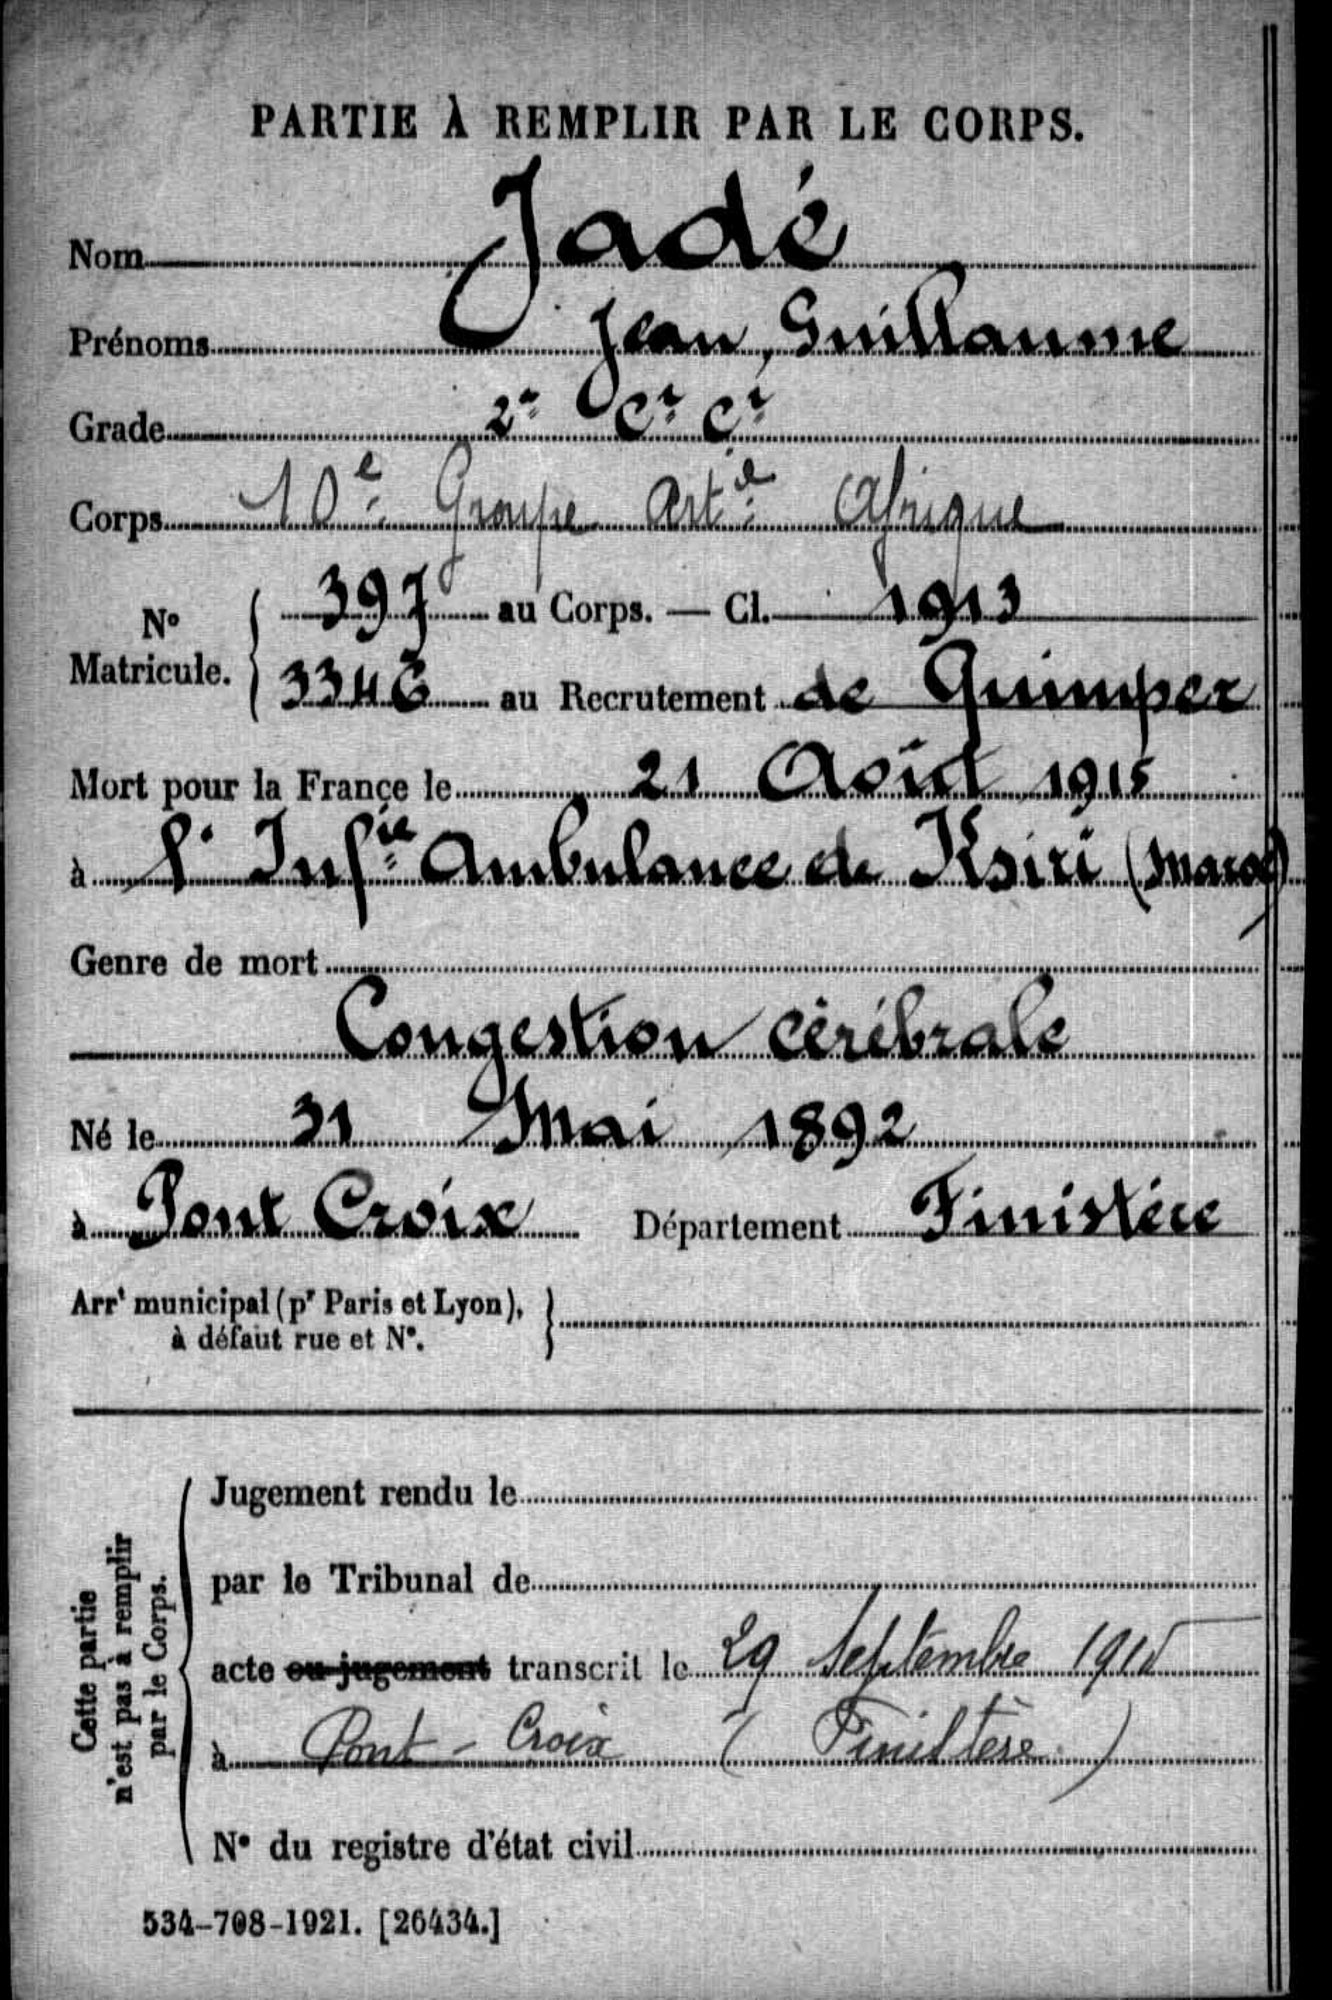 PARTIE À REMPLIR PAR LE CORPS.
Nom Jadé
Prénoms Jean, Guillaume
Grade 2e Cr Cr
Corps 10e Groupe Artie Afrique
No Matricule. 397 au Corps. — Cl. 1913
3346 au Recrutement de Quimper
Mort pour la France le 21 Août 1915
à l'Infie Ambulance de Ksiri (Maroc)
Genre de mort
Congestion cérébrale
Né le 31 Mai 1892
à Pont Croix Département Finistère
Arrt municipal (pr Paris et Lyon),
à défaut rue et No.
Cette partie n'est pas à remplir par le Corps.
Jugement rendu le
par le Tribunal de
acte ou jugement transcrit le 29 Septembre 1915
à Pont-Croix (Finistère)
No du registre d'état civil
534-708-1921. [26434.]